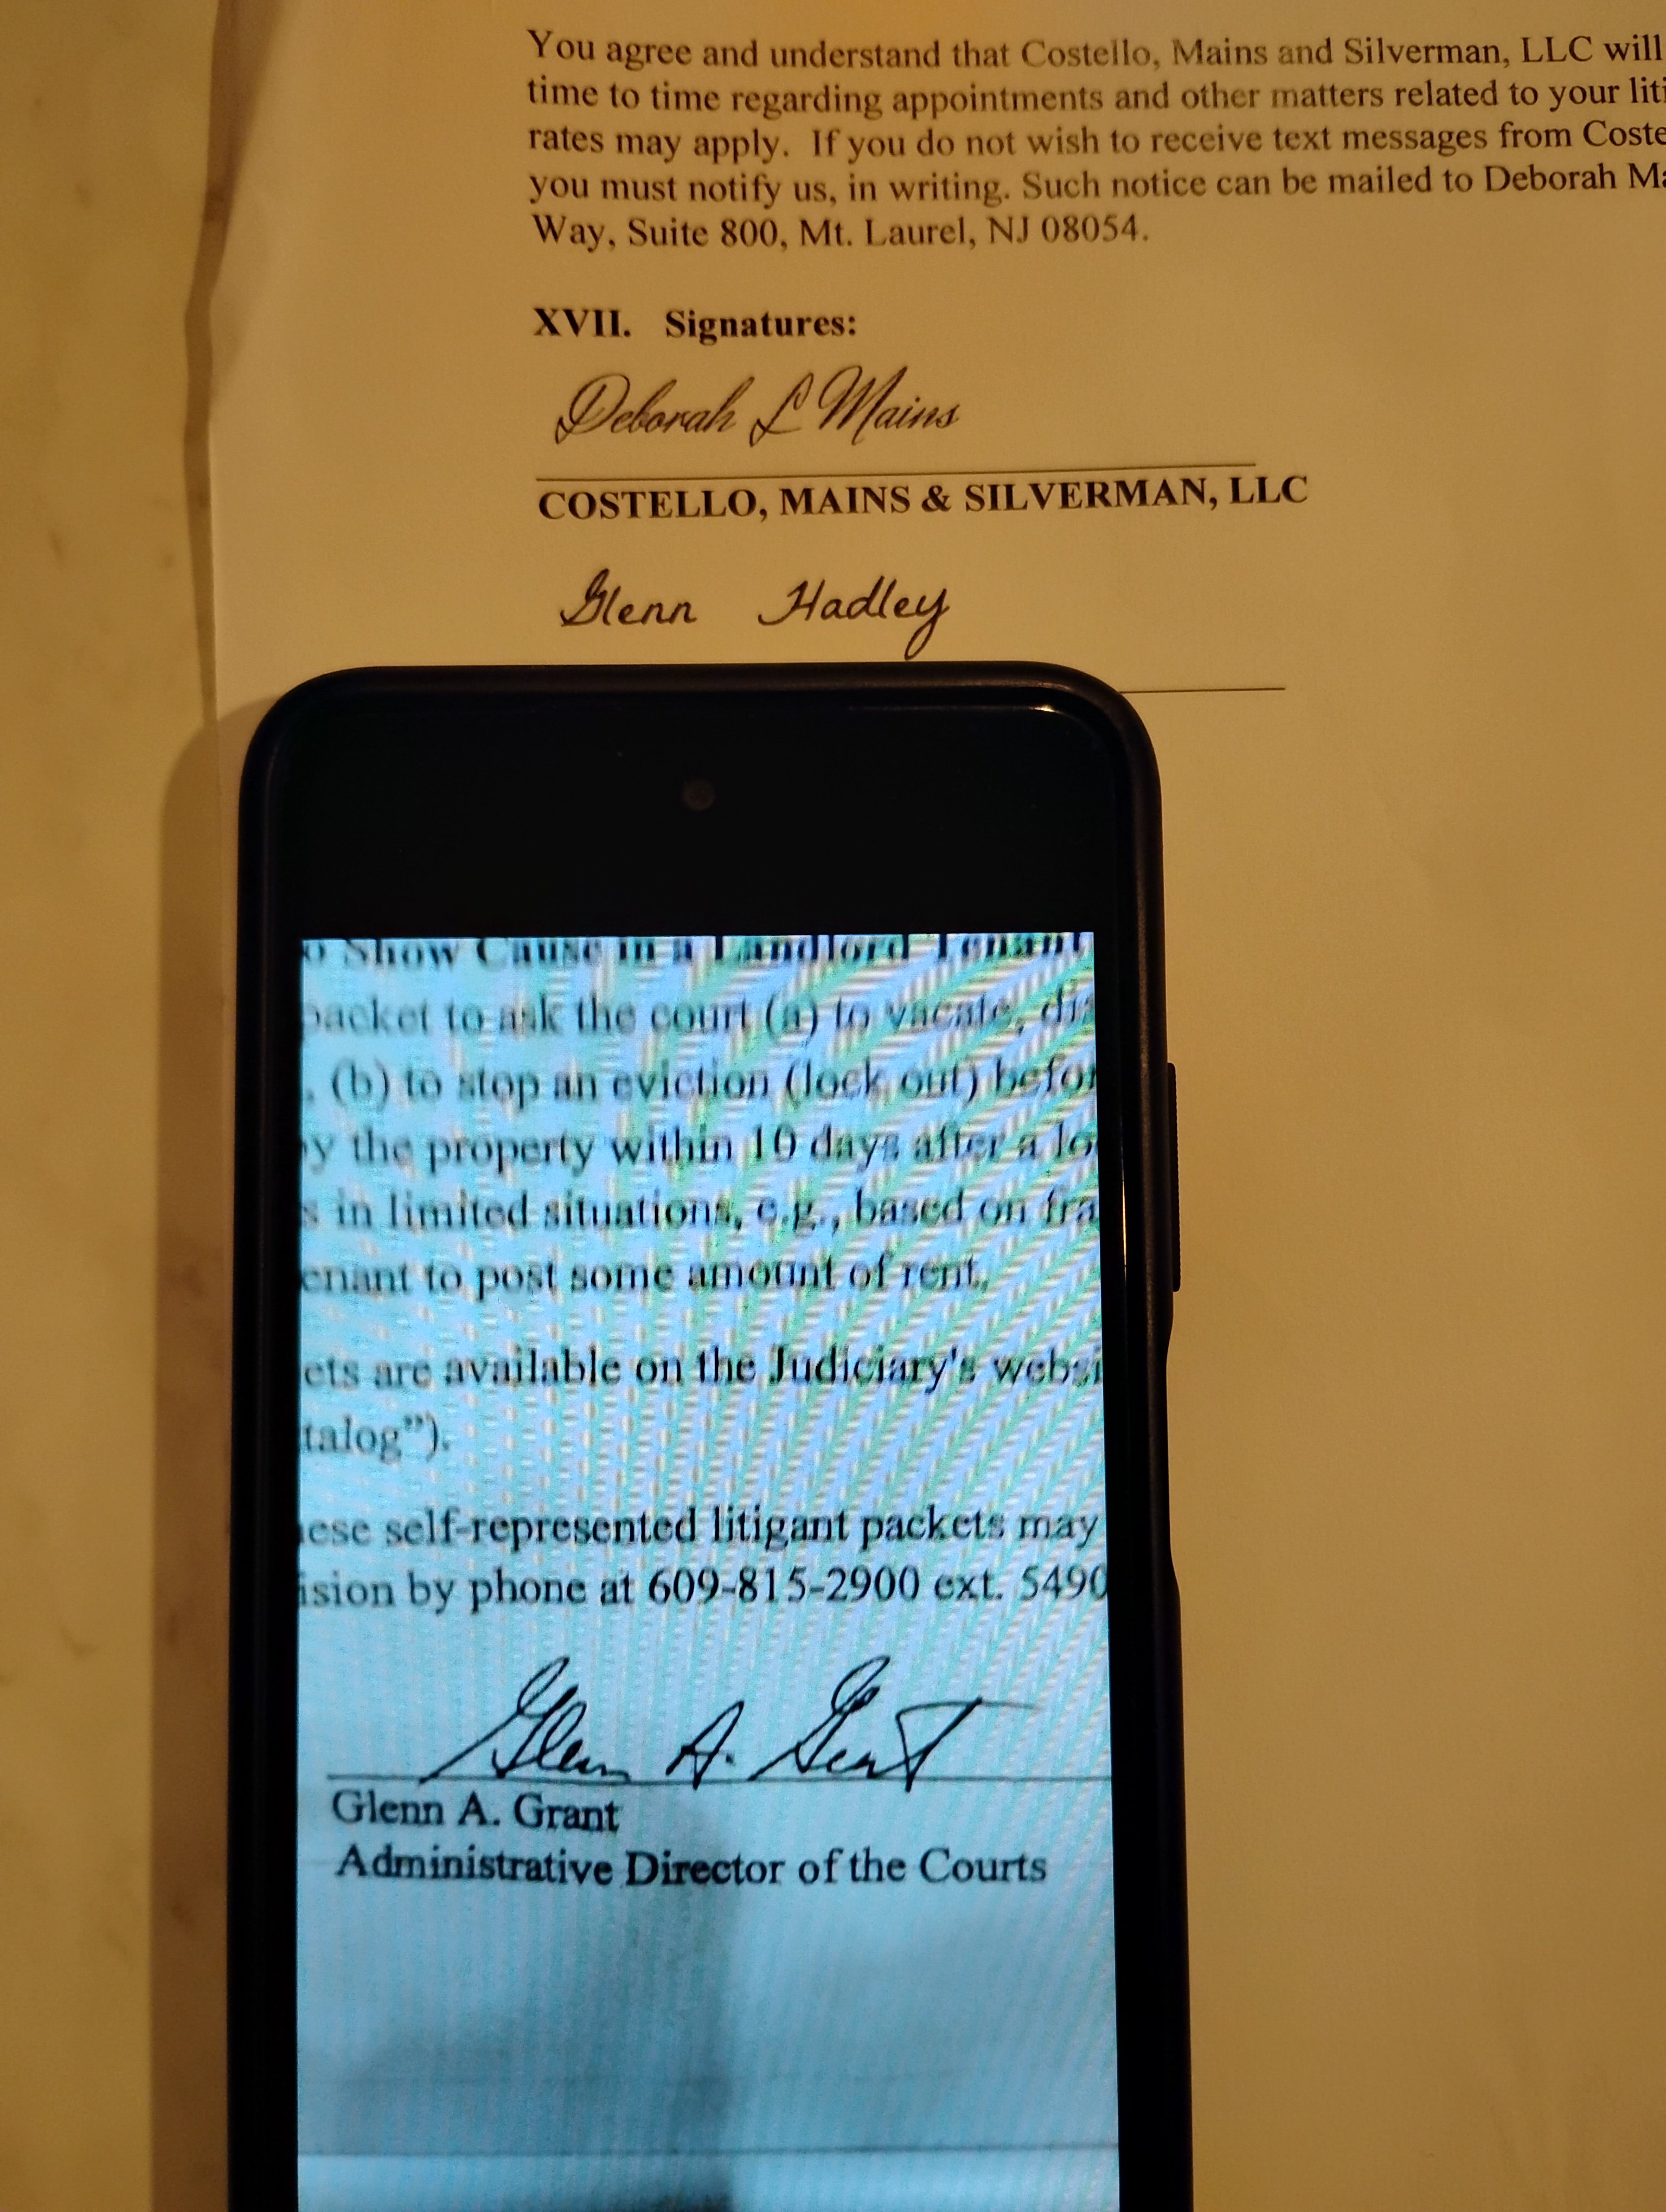 You agree and understand that Costello, Mains and Silverman, LLC will
time to time regarding appointments and other matters related to your liti
rates may apply. If you do not wish to receive text messages from Coste
you must notify us, in writing. Such notice can be mailed to Deborah Ma
Way, Suite 800, Mt. Laurel, NJ 08054.
XVII. Signatures:
Deborah L Mains
COSTELLO, MAINS & SILVERMAN, LLC
Glenn Hadley
o Show Cause in a Landlord Tenant
packet to ask the court (a) to vacate, dis
, (b) to stop an eviction (lock out) befor
y the property within 10 days after a lo
s in limited situations, e.g., based on fra
enant to post some amount of rent.
ets are available on the Judiciary's websi
talog").
ese self-represented litigant packets may
ision by phone at 609-815-2900 ext. 5490
Glenn A. Grant
Glenn A. Grant
Administrative Director of the Courts